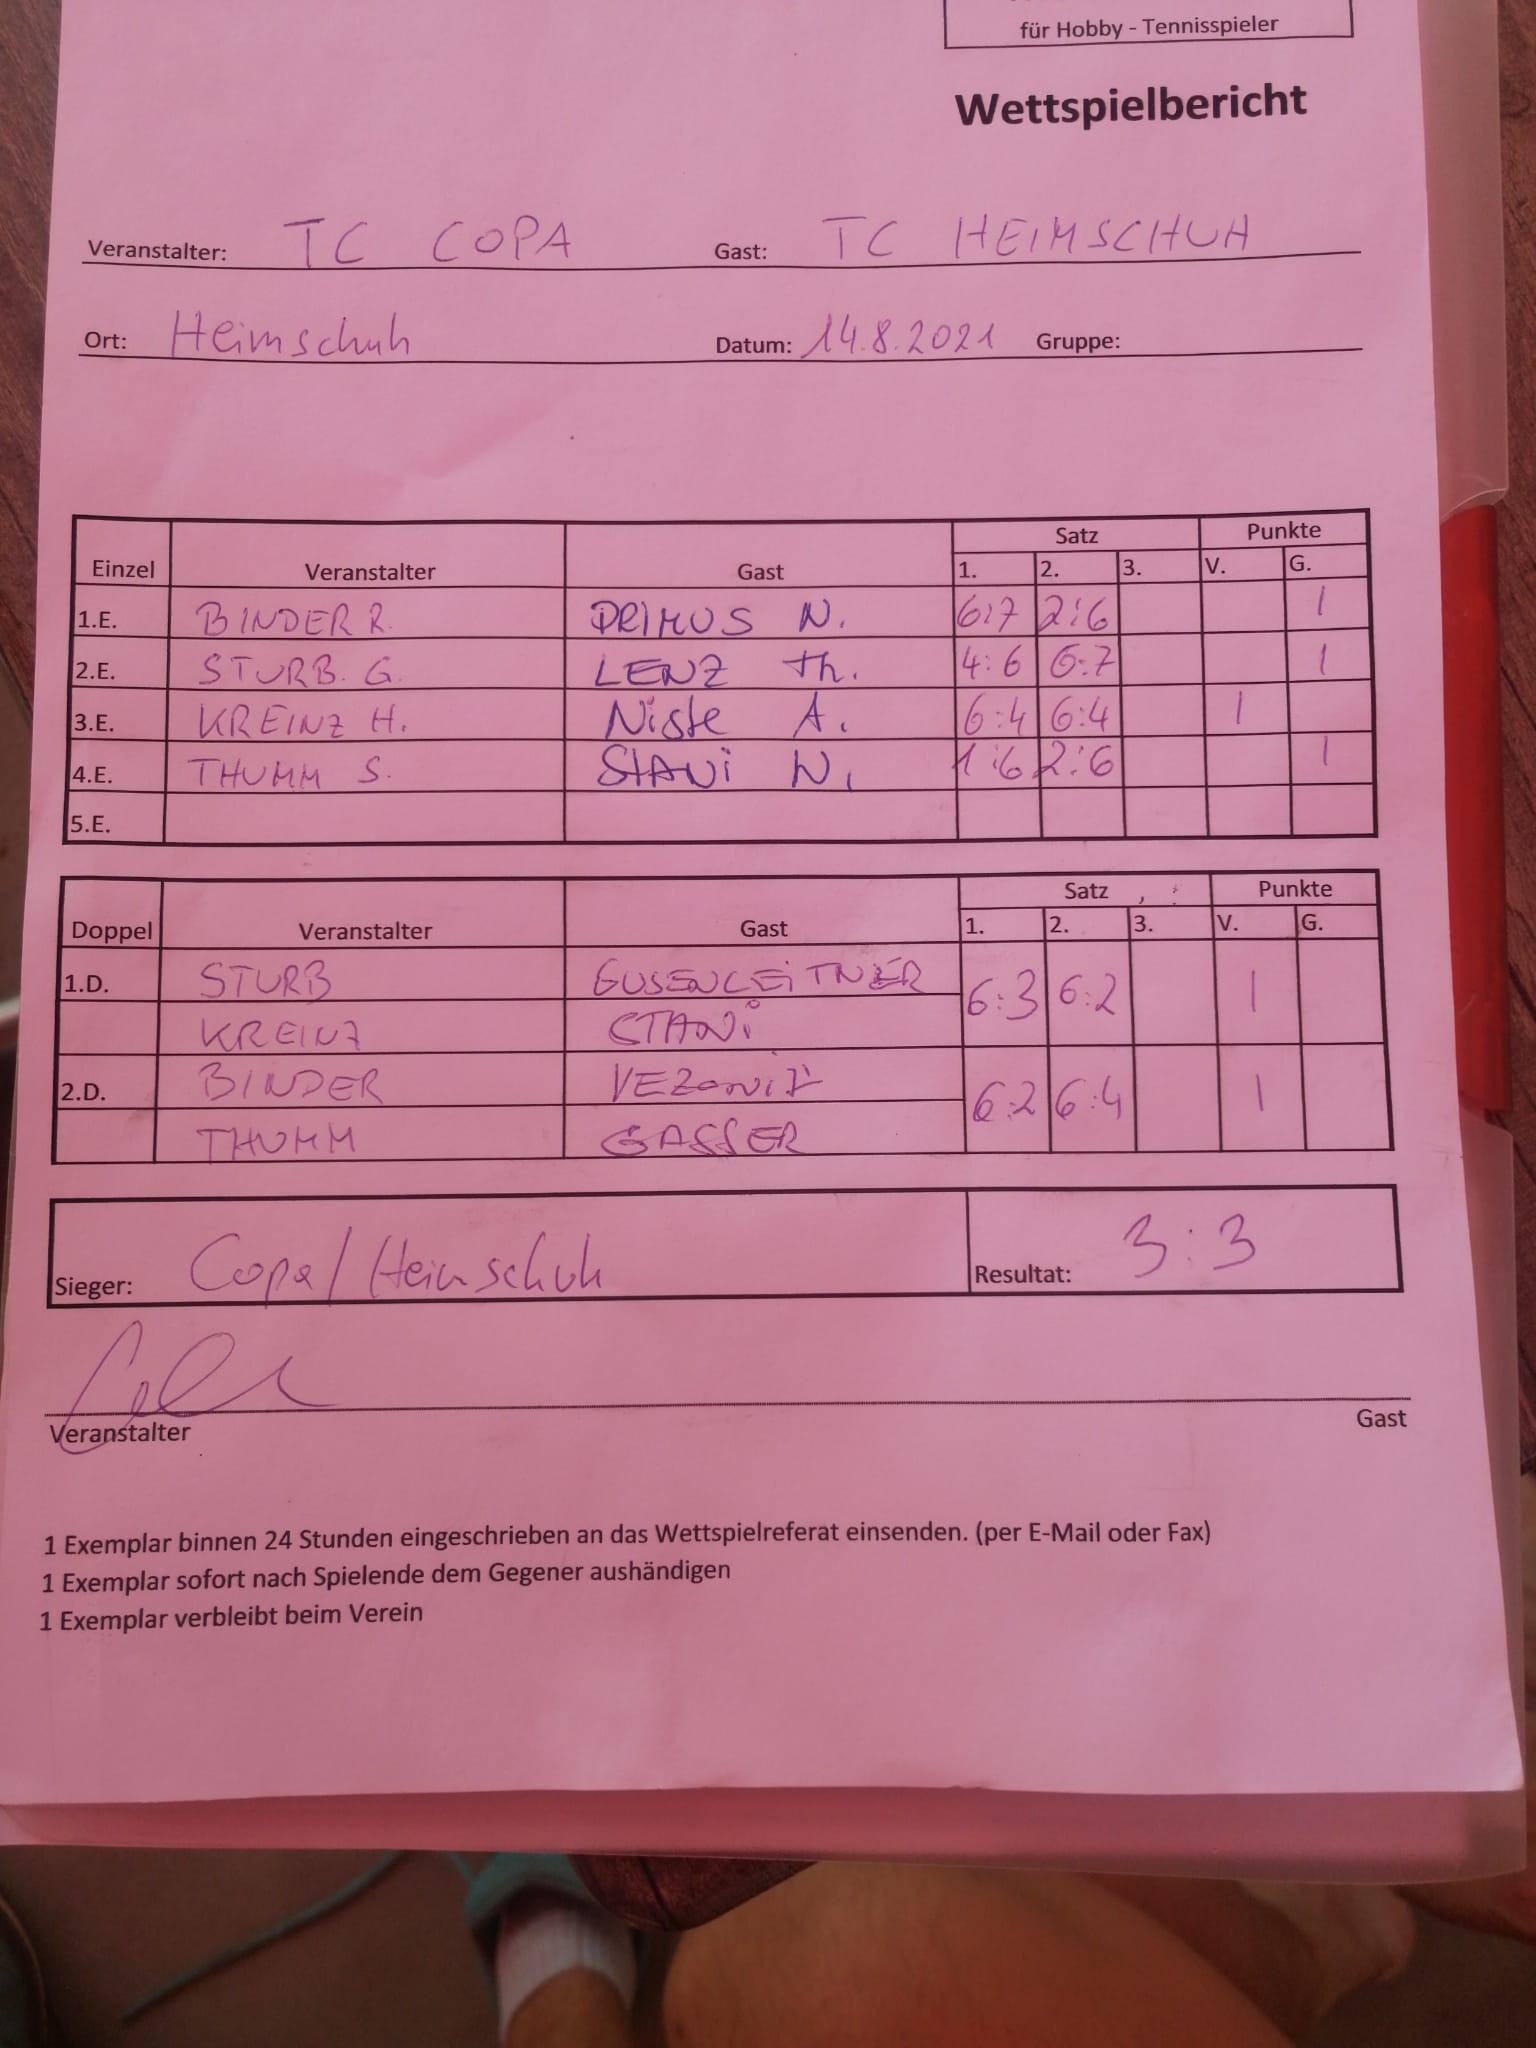 für Hobby - Tennisspieler
Wettspielbericht
Veranstalter: TC COPA Gast: TC HEIMSCHUH
Ort: Heimschuh Datum: 14.8.2021 Gruppe:
Satz Punkte
Einzel Veranstalter Gast 1. 2. 3. V. G.
1.E. BINDER R. PRIMUS N. 6:7 2:6 1
2.E. STURB. G. LENZ Th. 4:6 6:7 1
3.E. KREINZ H. Niste A. 6:4 6:4 1
4.E. THUMM S. STANi N. 1:6 2:6 1
5.E.
Satz Punkte
Doppel Veranstalter Gast 1. 2. 3. V. G.
1.D. STURB GUSENLEiTNER 6:3 6:2 1
KREINZ STANi
2.D. BINDER 6:2 6:4 1
THUMM GASSER
Sieger: Copa/Heimschuh Resultat: 3:3
Veranstalter Gast
1 Exemplar binnen 24 Stunden eingeschrieben an das Wettspielreferat einsenden. (per E-Mail oder Fax)
1 Exemplar sofort nach Spielende dem Gegener aushändigen
1 Exemplar verbleibt beim Verein